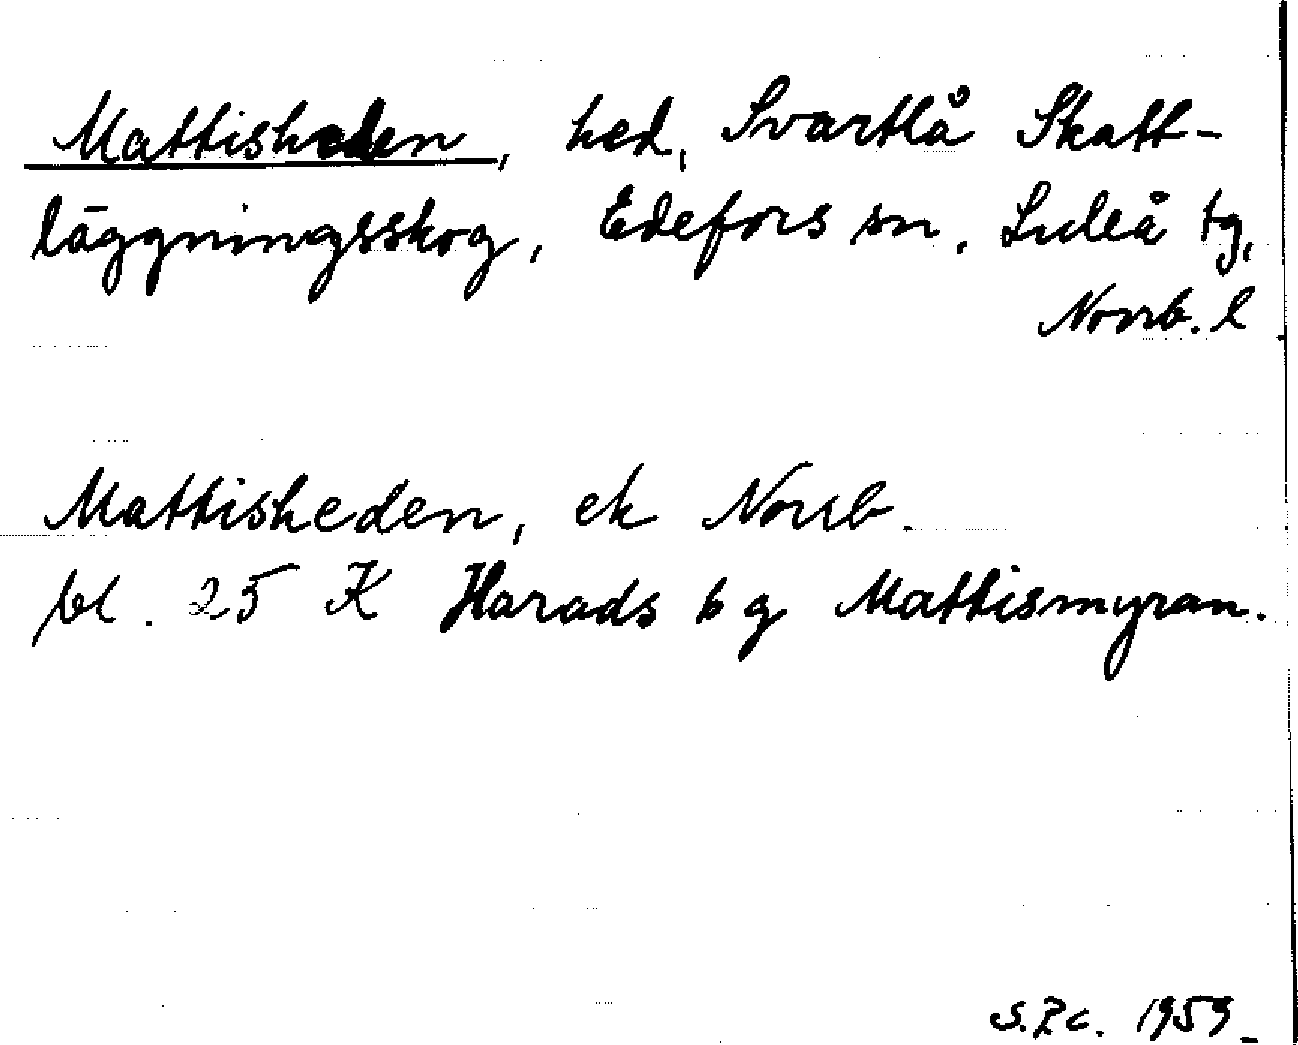 Mattisheden, hed, Svartlå Skatt-
läggningsskog, Edefors sn, Luleå tg,
Norrb. l
Mattisheden, ek Norrb.
bl. 25 K Harads b g Mattismyran.
S.P.c. 1959